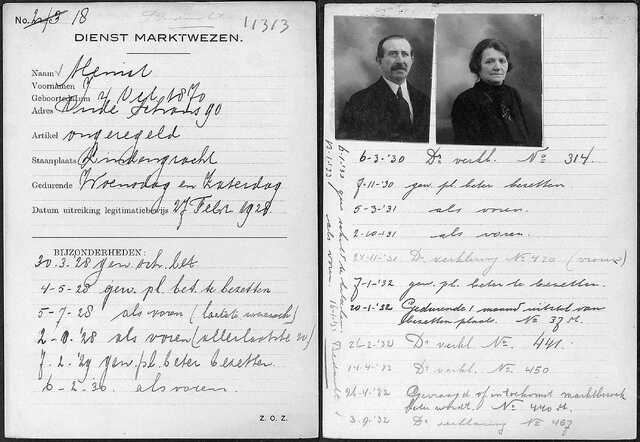 No. 18
11313
DIENST MARKTWEZEN.
Naam
Voornamen J
Geboortedatum 4 1870
Adres Oude Schans 90
Artikel ongeregeld
Staanplaats Lindengracht
Gedurende Woensdag en Zaterdag
Datum uitreiking legitimatiebewijs 27 Febr. 1928.
BIJZONDERHEDEN:
30.3.28 gew. bet.
4-5-28 gew. pl. bet. te bezetten
5-7-28 als voren (laatste waarsch)
2-8-'28 als voren (allerlaatste w)
7.2.'29 gew. pl. beter bezetten.
6-2-30. als voren.
Z. O. Z.
6-3-'30 Dr. verkl. No 314.
7-11-30 gew. pl. beter bezetten.
5-3-'31 als voren.
2-10-31 als voren.
24-11-31 Dr. verklaring No 420 (vrouw)
7-1-'32 gew. pl. beter te bezetten.
20-1-'32 Gedurende 1 maand uitstel van
bezetten plaats. No 37 St.
26-2-'32 Dr. verkl. No. 441.
14-4-'32 Dr. verkl. No 450
26-4-'32 Gevraagd of
beter wordt. No 440 St.
3-9-'32 Dr. verklaring No 467